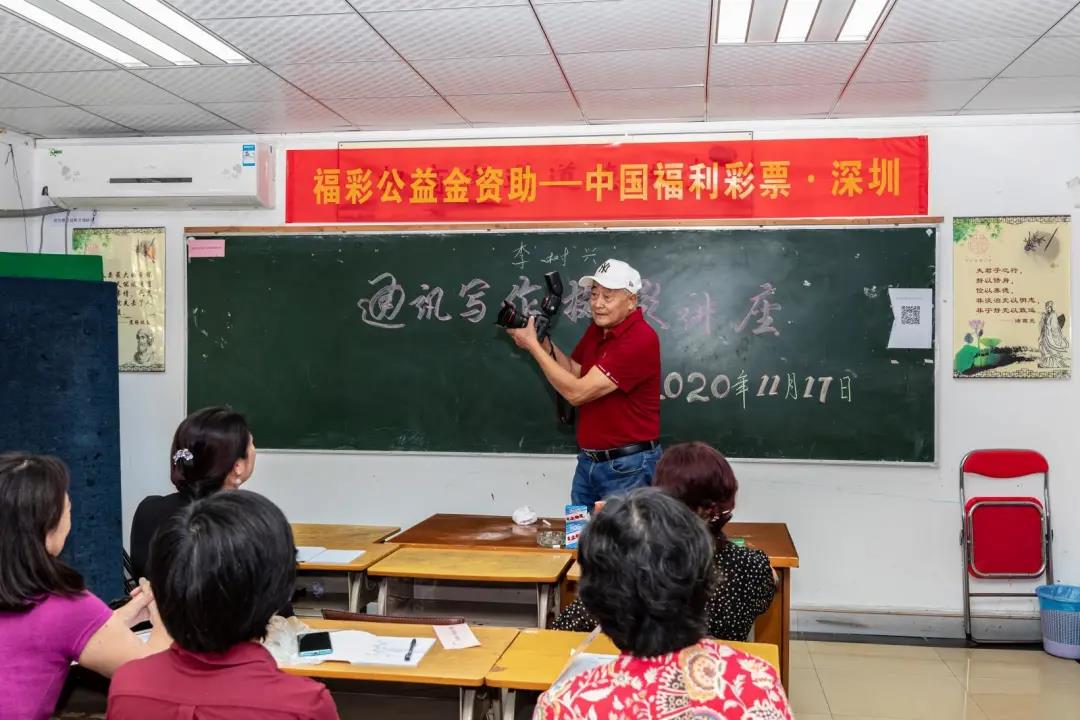 福彩公益金资助—中国福利彩票·深圳
李树兴
通讯写作摄影讲座
2020年11月17日
NY
夫君子之行,
静以修身,
俭以养德,
非淡泊无以明志,
非宁静无以致远
——诸葛亮